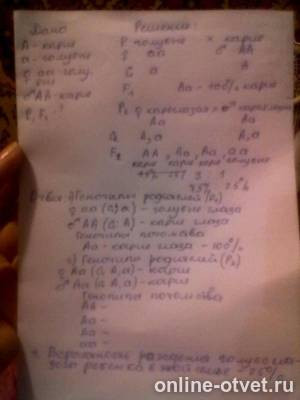 Дано Решение:
А - карие Р голубые х карие
а - голубые ♀ аа ♂ АА
♀ аа - голу- G а А
бые F1 Аа - 100% карие
♂ АА - карие
Р, F1 - ? Р2 ♀ кареглазая х ♂ кареглазый
Аа Аа
G А, а А, а
F2 АА, Аа, Аа, аа
карие карие карие голубые
3 : 1
75% 25%
Ответ: 1) Генотипы родителей (Р1)
♀ аа (G: а) - голубые глаза
♂ АА (G: А) - карие глаза
Генотипы потомства
Аа - карие глаза - 100%
2) Генотипы родителей (Р2)
♀ Аа (G: А, а) - карие
♂ Аа (G: А, а) - карие
Генотипы потомства
АА -
Аа -
Аа -
аа -
Вероятность рождения голубогла-
зого ребенка в этой семье 25%
online-otvet.ru